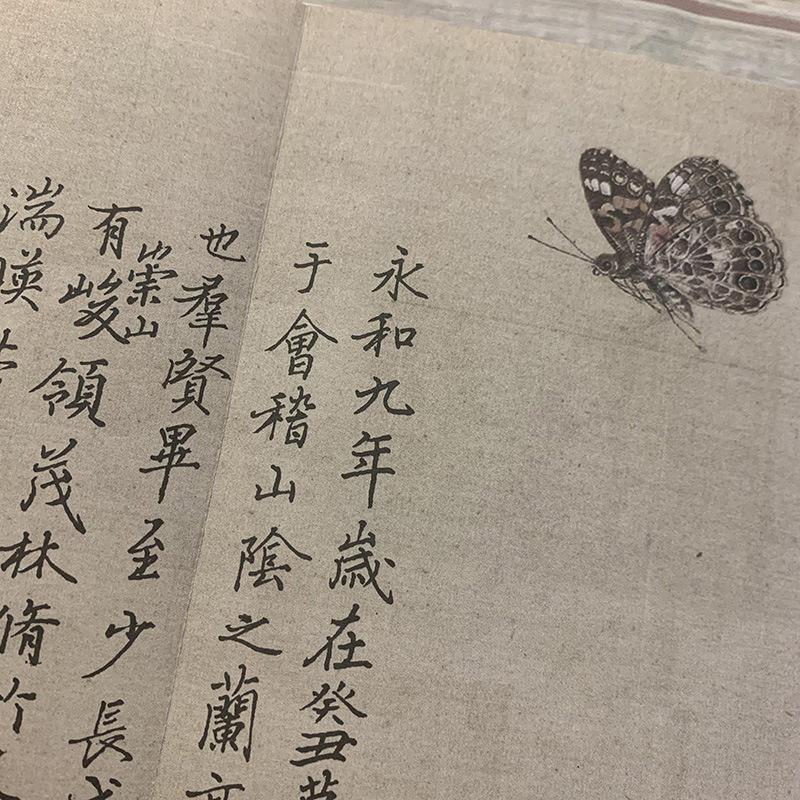 永和九年歲在癸丑
于會稽山陰之蘭亭
也羣賢畢至少長咸
有崇山峻領茂林脩竹
湍暎